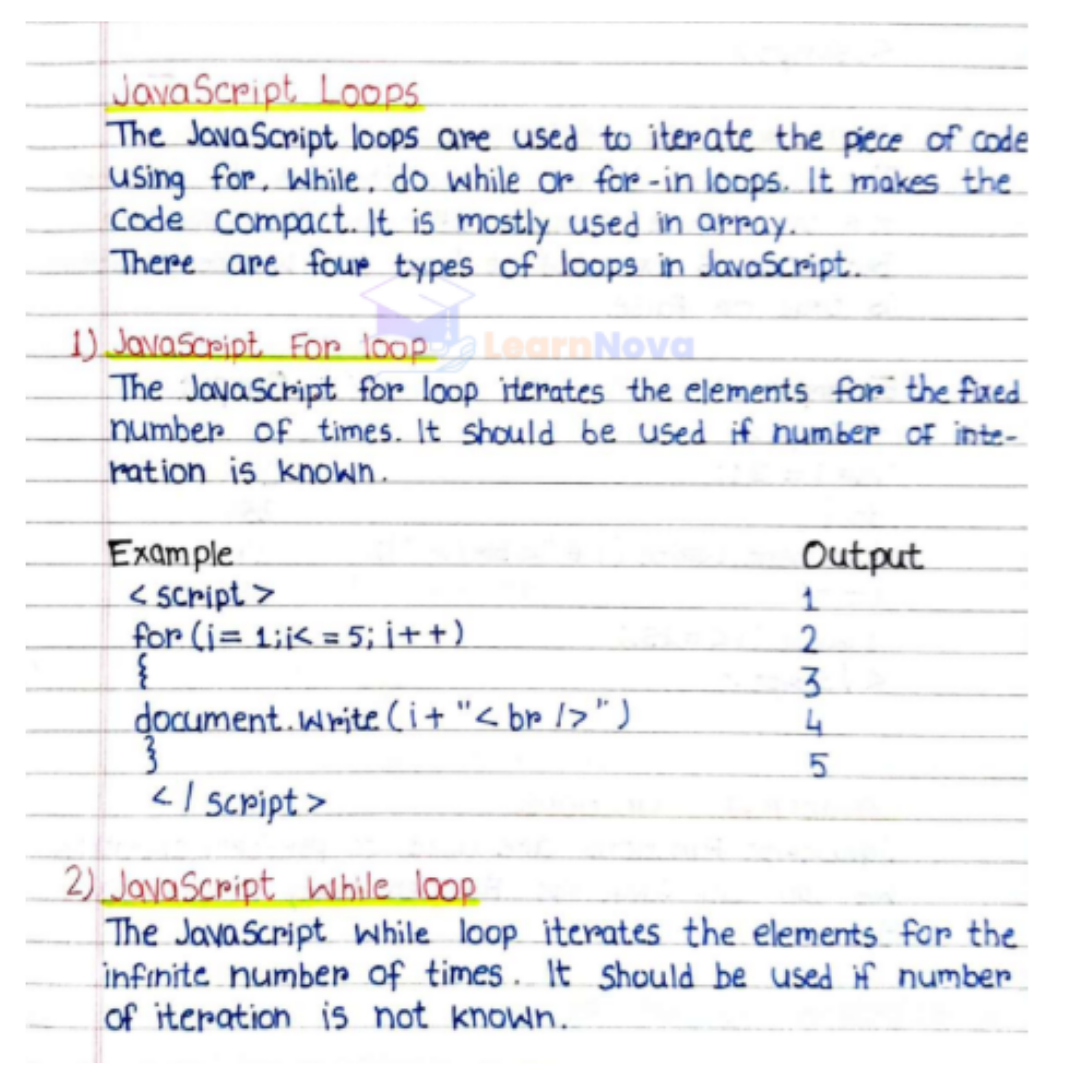 JavaScript Loops
The JavaScript loops are used to iterate the piece of code
using for, while, do while or for-in loops. It makes the
code compact. It is mostly used in array.
There are four types of loops in JavaScript.
LearnNova
1) JavaScript For loop
The JavaScript for loop iterates the elements for the fixed
number of times. It should be used if number of inte-
ration is known.
Example Output
<script> 1
for (i= 1;i<=5; i++) 2
{ 3
document.write(i+ "<br />") 4
} 5
</script>
2) JavaScript while loop
The JavaScript while loop iterates the elements for the
infinite number of times. It should be used if number
of iteration is not known.